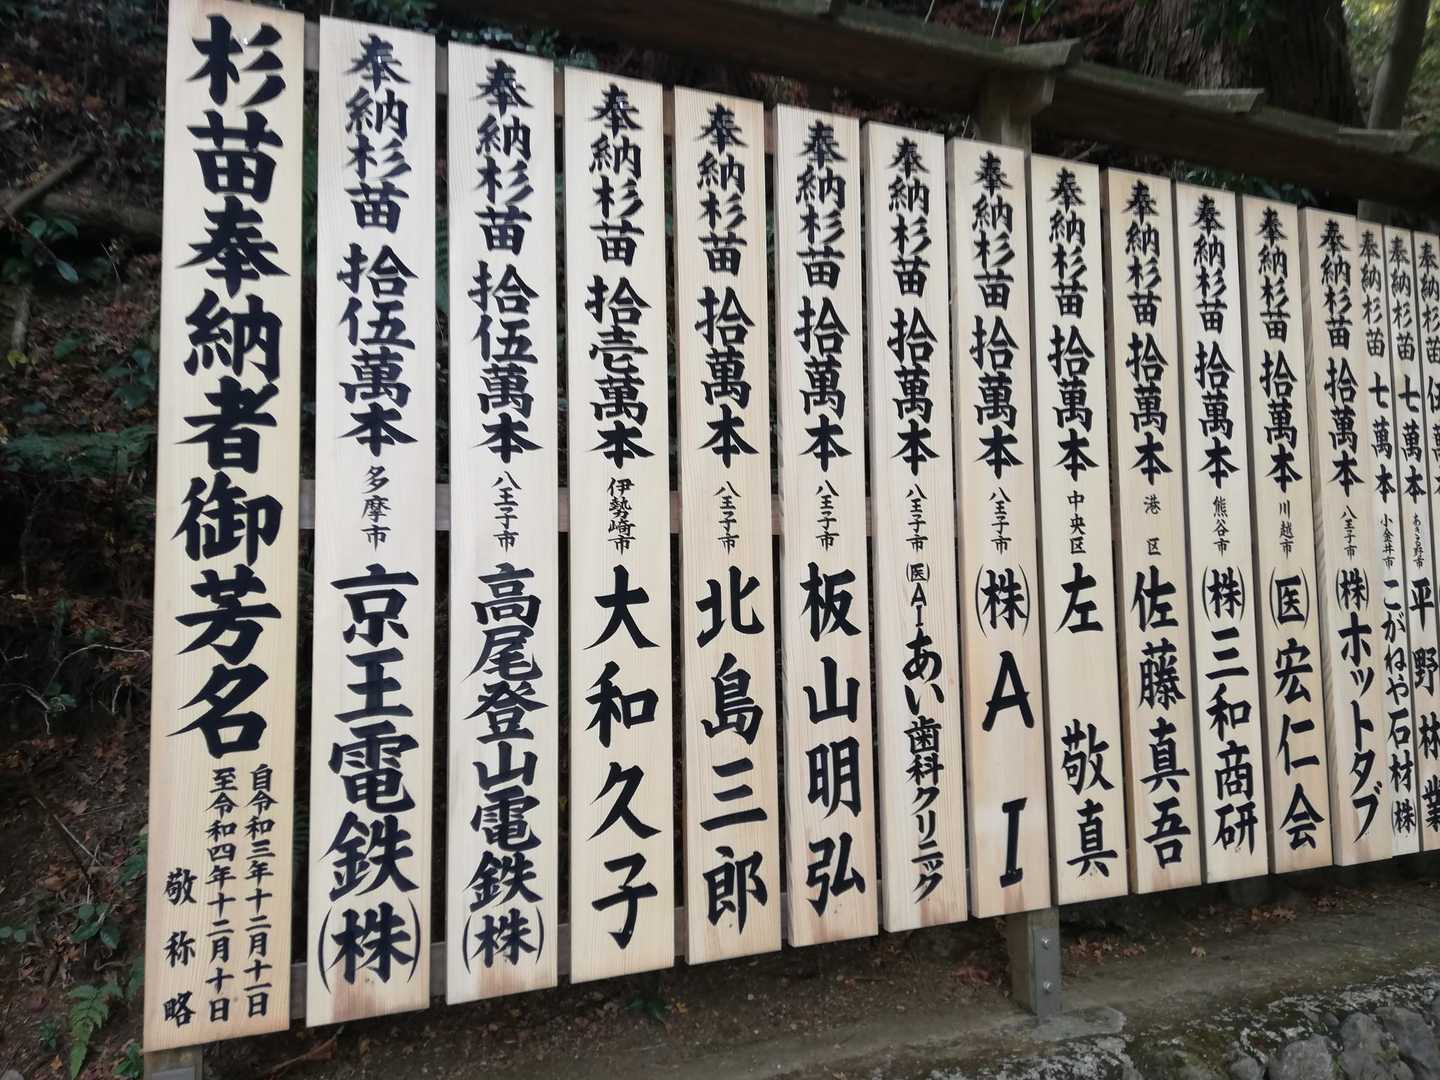 杉苗奉納者御芳名
自令和三年十二月十一日
至令和四年十二月十日
敬称略
奉納杉苗 拾伍萬本 多摩市 京王電鉄(株)
奉納杉苗 拾伍萬本 八王子市 高尾登山電鉄(株)
奉納杉苗 拾壱萬本 伊勢崎市 大和久子
奉納杉苗 拾萬本 八王子市 北島三郎
奉納杉苗 拾萬本 八王子市 板山明弘
奉納杉苗 拾萬本 八王子市 (医)AIあい歯科クリニック
奉納杉苗 拾萬本 八王子市 (株)AI
奉納杉苗 拾萬本 中央区 左敬真
奉納杉苗 拾萬本 港区 佐藤真吾
奉納杉苗 拾萬本 熊谷市 (株)三和商研
奉納杉苗 拾萬本 川越市 (医)宏仁会
奉納杉苗 拾萬本 八王子市 (株)ホットタブ
奉納杉苗 七萬本 小金井市 こがねや石材(株)
奉納杉苗 七萬本 あきる野市 平野林業
奉納杉苗 伍萬本